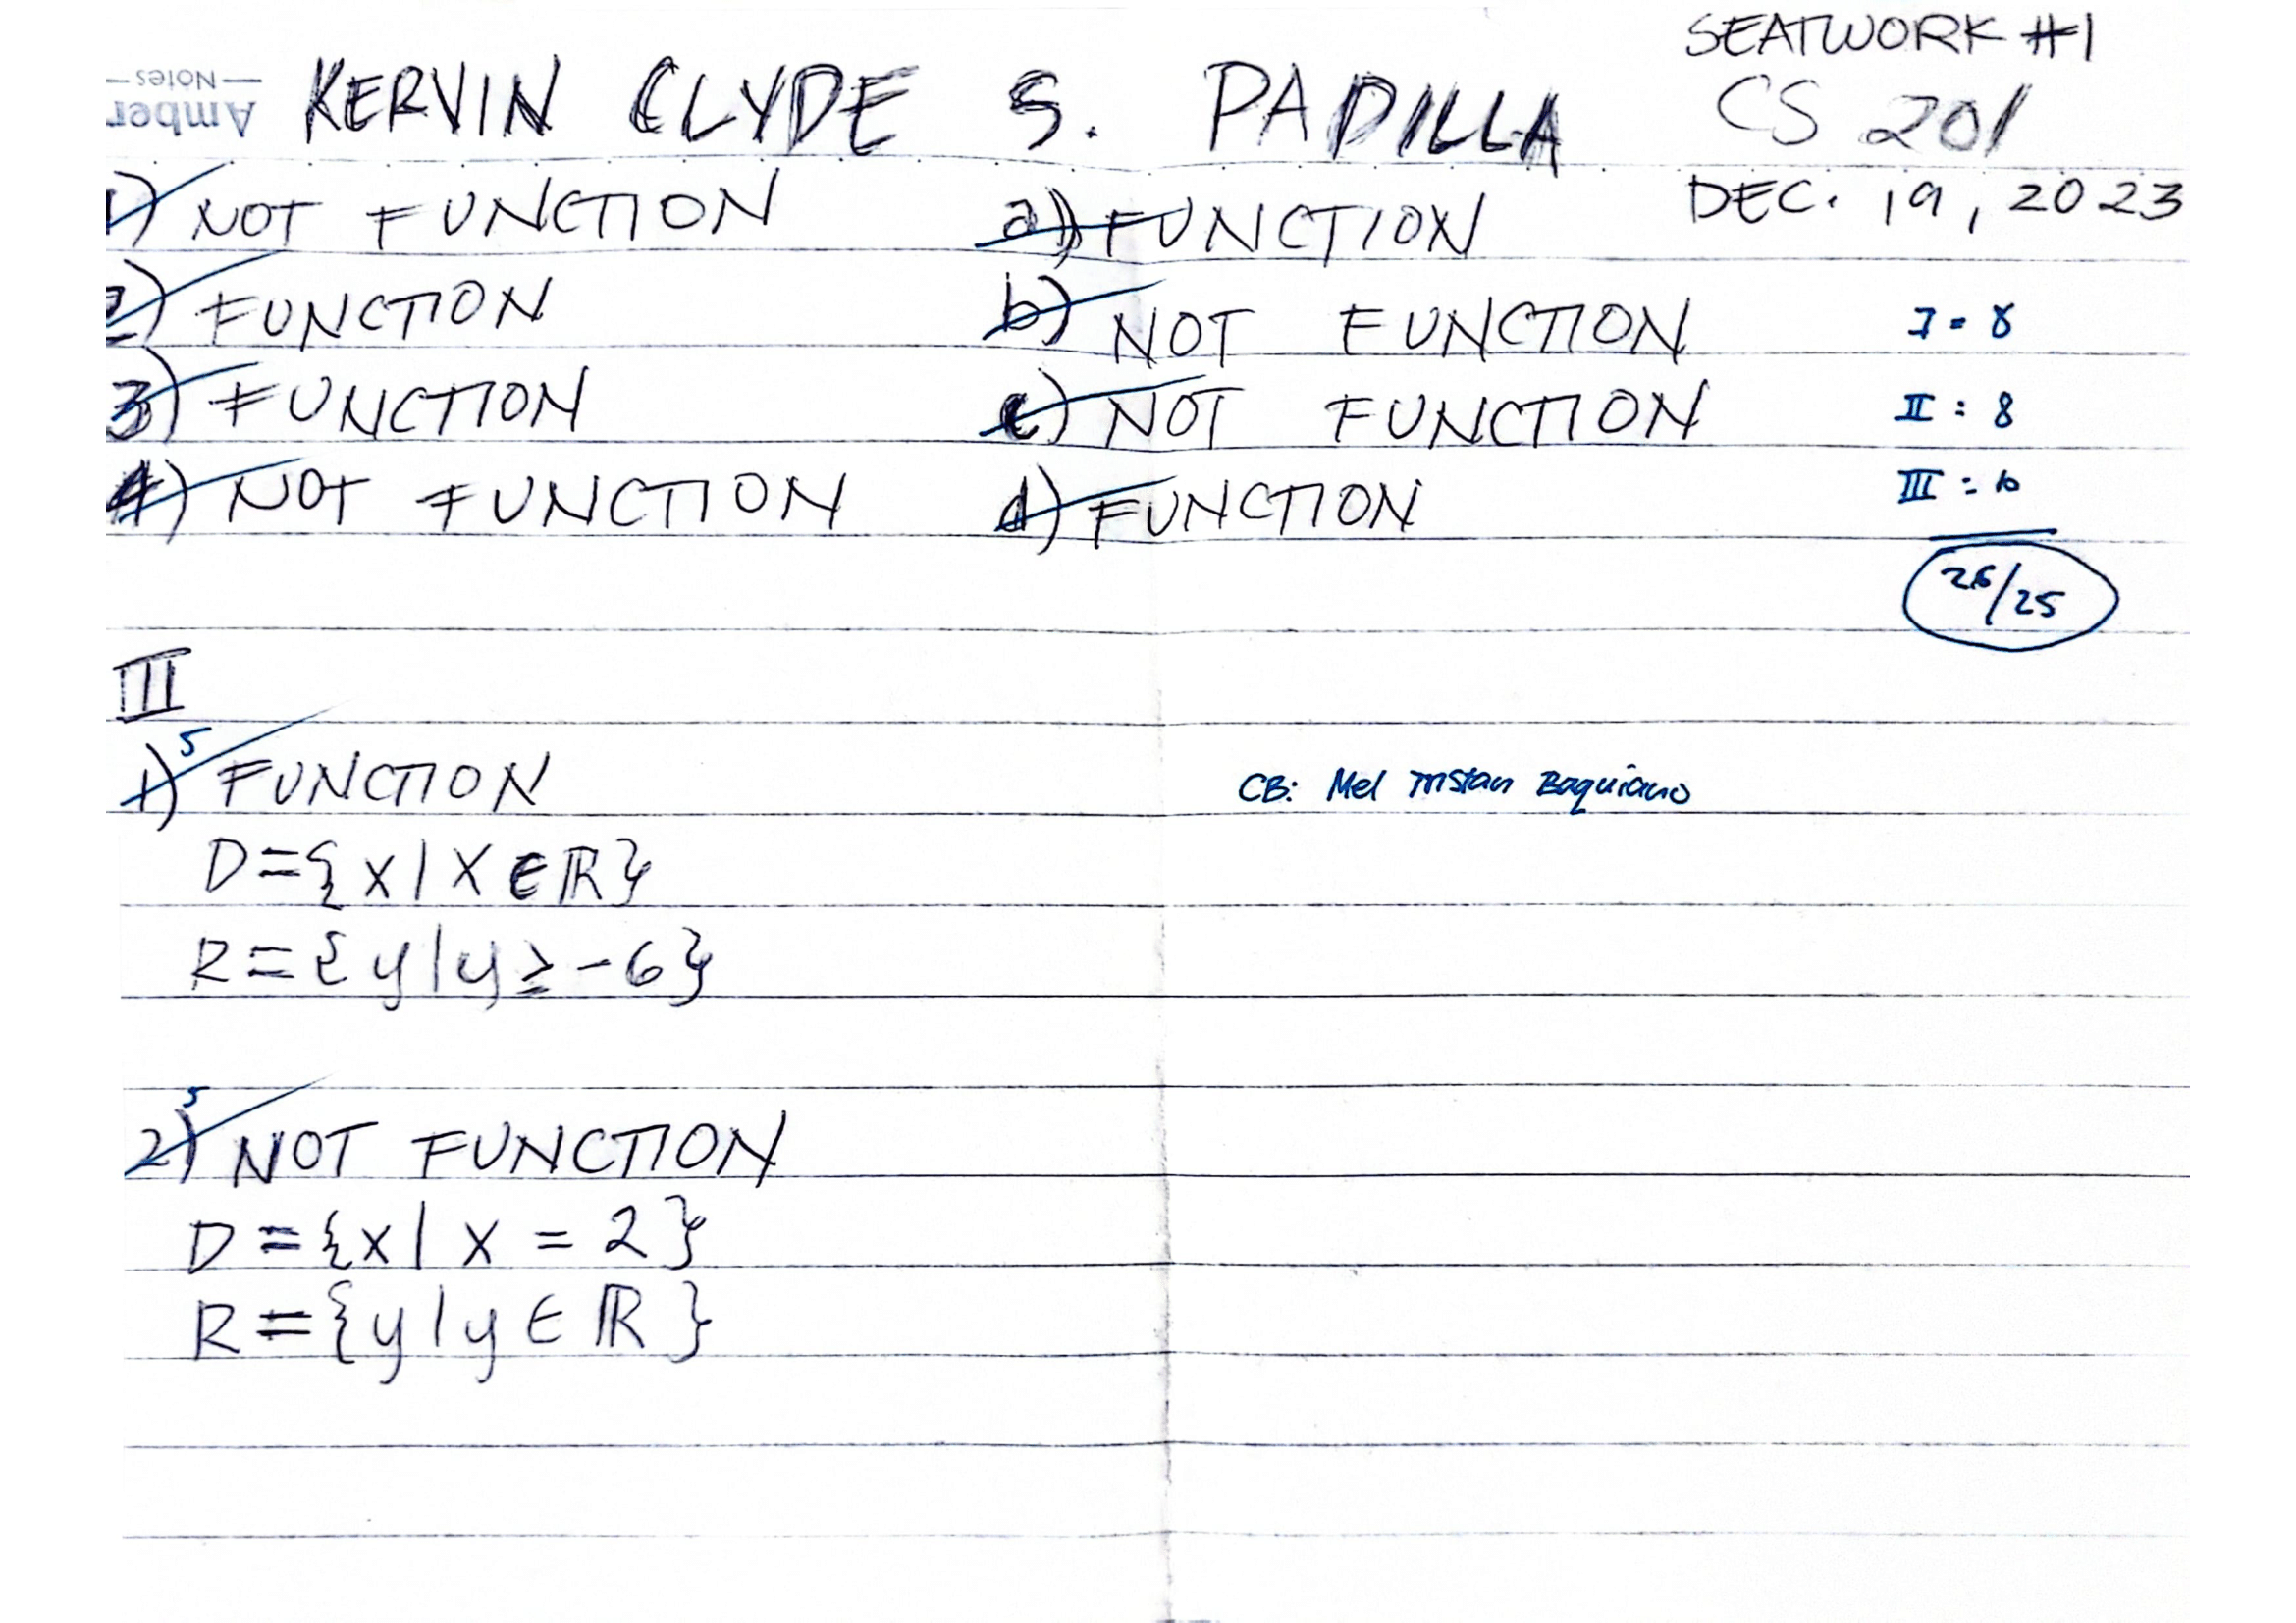 SEATWORK #1
Amber
Notes
KERVIN CLYDE S. PADILLA
CS 201
DEC. 19, 2023
1) NOT FUNCTION
2) FUNCTION
3) FUNCTION
4) NOT FUNCTION
a) FUNCTION
b) NOT FUNCTION
c) NOT FUNCTION
d) FUNCTION
I = 8
II = 8
III = 10
26/25
III
1) 5 FUNCTION
D={x|x∈ℝ}
R={y|y≥-6}
CB: Mel Tristan Baquiano
2) 5 NOT FUNCTION
D={x|x = 2}
R={y|y∈ℝ}